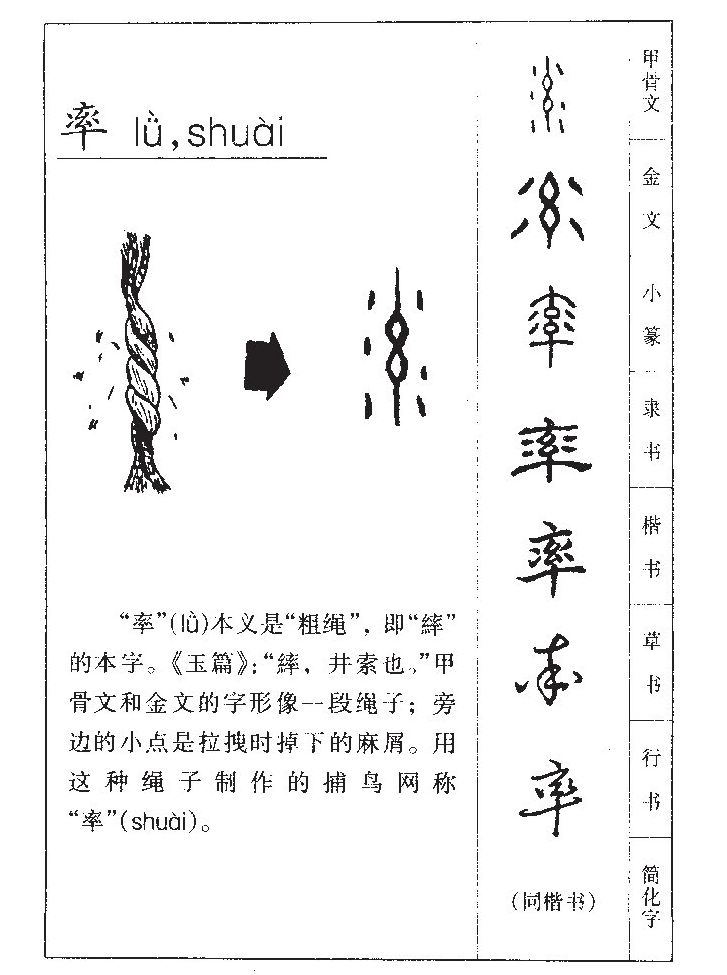 率 lǜ,shuài
“率”(lǜ)本义是“粗绳”，即“繂”
的本字。《玉篇》：“繂，井索也。”甲
骨文和金文的字形像一段绳子；旁
边的小点是拉拽时掉下的麻屑。用
这种绳子制作的捕鸟网称
“率”(shuài)。
率
率
率
率
率
率
率
(同楷书)
甲骨文
金文
小篆
隶书
楷书
草书
行书
简化字